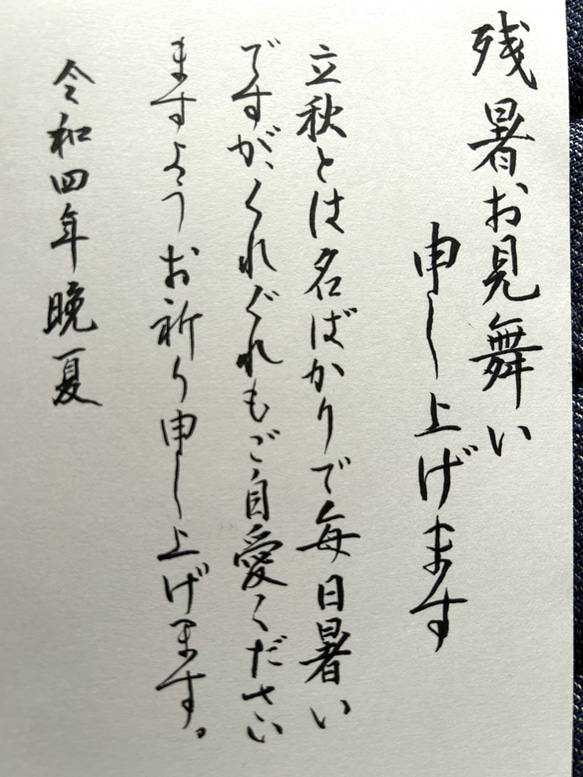 残暑お見舞い
申し上げます
立秋とは名ばかりで毎日暑い
ですが、くれぐれもご自愛ください
ますようお祈り申し上げます。
令和四年晩夏